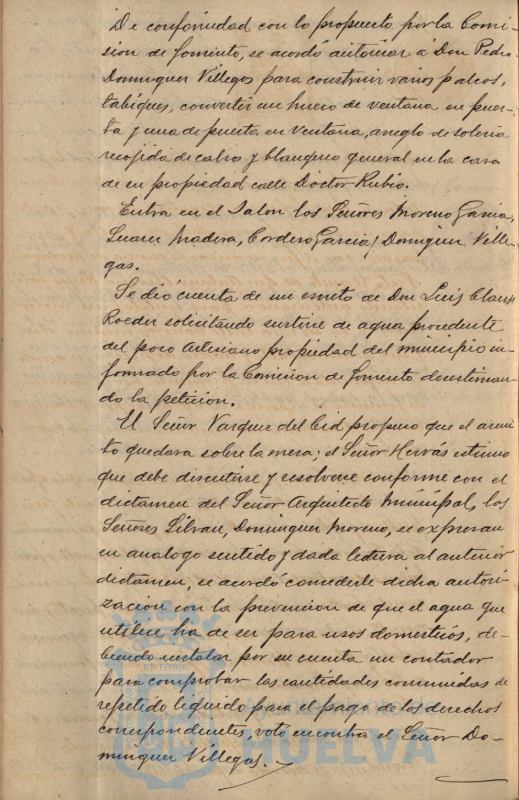 De conformidad con lo propuesto por la Comi-
sion de fomento, se acordó autorizar a Don Pedro
Dominguez Villegas para construir varios palcos,
tabiques, convertir un hueco de ventana en puer-
ta y una de puerta en ventana, arreglo de soleria
recojida de cabro y blanqueo general en la casa
de su propiedad calle Doctor Rubio.
Entra en el Salon los Señores Moreno Garcia,
Suarez Madera, Cordero Garcia y Dominguez Ville-
gas.
Se dió cuenta de un escrito de Don Luis Clauss
Roeder solicitando surtirse de agua procedente
del pozo Artesiano propiedad del municipio in-
formado por la Comision de fomento desestiman-
do la peticion.
El Señor Vazquez del Cid propuso que el asun-
to quedara sobre la mesa; el Señor Hervás estimo
que debe discutirse y resolverse conforme con el
dictamen del Señor Arquitecto Municipal, los
Señores Silvan, Dominguez Moreno, se expresan
en analogo sentido y dada lectura al anterior
dictamen, se acordó concederle dicha autori-
zacion con la prevencion de que el agua que
utilice ha de ser para usos domesticos, de-
biendo instalar por su cuenta un contador
para comprobar las cantidades consumidas de
repetido liquido para el pago de los derechos
correspondientes, votó en contra el Señor Do-
minguez Villegas.
HUELVA